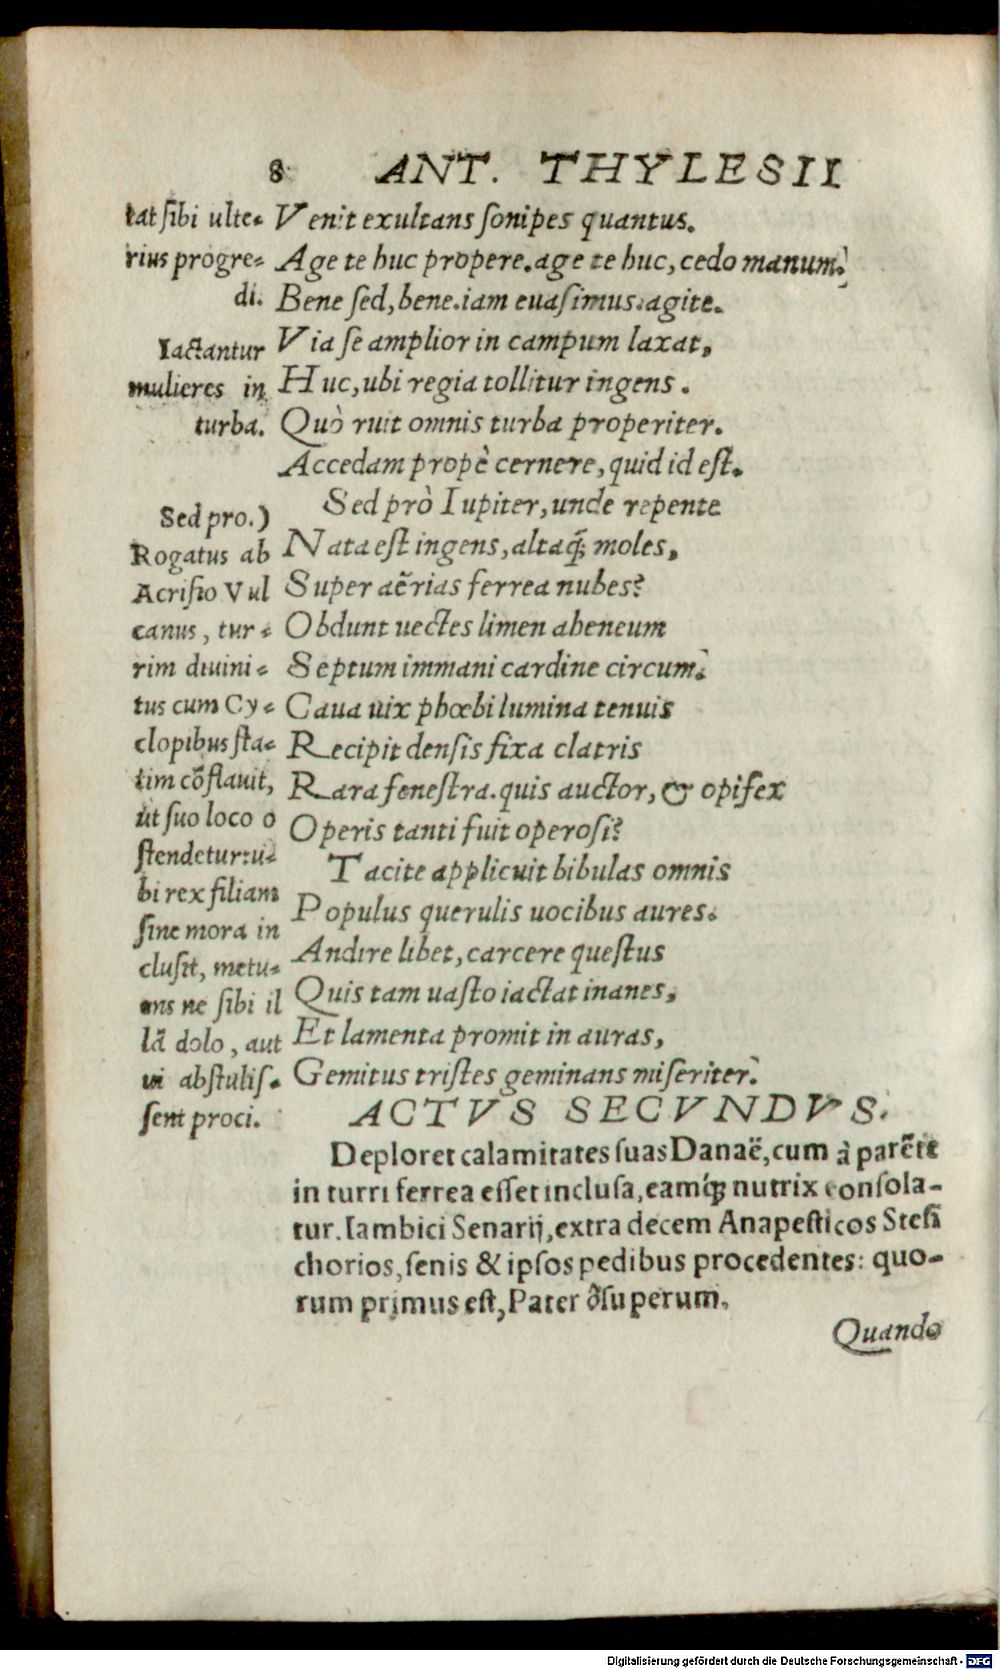 8 ANT. THYLESII
tat sibi ulte-
rius progre-
di.
Iactantur
mulieres in
turba.
Sed pro.)
Rogatus ab
Acrisio Vul
canus, tur-
rim diuini-
tus cum Cy-
clopibus sta-
tim cōflauit,
ut suo loco o
stendetur: u-
bi rex filiam
sine mora in
clusit, metu-
ens ne sibi il
lā dolo, aut
ui abstulis-
sent proci.
Venit exultans sonipes quantus.
Age te huc propere. age te huc, cedo manum.
Bene sed, bene. iam euasimus. agite.
Via se amplior in campum laxat,
Huc, ubi regia tollitur ingens.
Quò ruit omnis turba properiter.
Accedam propè cernere, quid id est.
Sed prò Iupiter, unde repente
Nata est ingens, altaq; moles,
Super aërias ferrea nubes?
Obdunt uectes limen aheneum
Septum immani cardine circum.
Caua uix phœbi lumina tenuis
Recipit densis fixa clatris
Rara fenestra. quis auctor, & opifex
Operis tanti fuit operosi?
Tacite applicuit bibulas omnis
Populus querulis uocibus aures.
Andire libet, carcere questus
Quis tam uasto iactat inanes,
Et lamenta promit in auras,
Gemitus tristes geminans miseriter.
ACTVS SECVNDVS.
Deploret calamitates suas Danaë, cum à parēte
in turri ferrea esset inclusa, eamq́; nutrix consola-
tur. Iambici Senarij, extra decem Anapesticos Stesi
chorios, senis & ipsos pedibus procedentes: quo-
rum primus est, Pater ô superum.
Quando
Digitalisierung gefördert durch die Deutsche Forschungsgemeinschaft - DFG